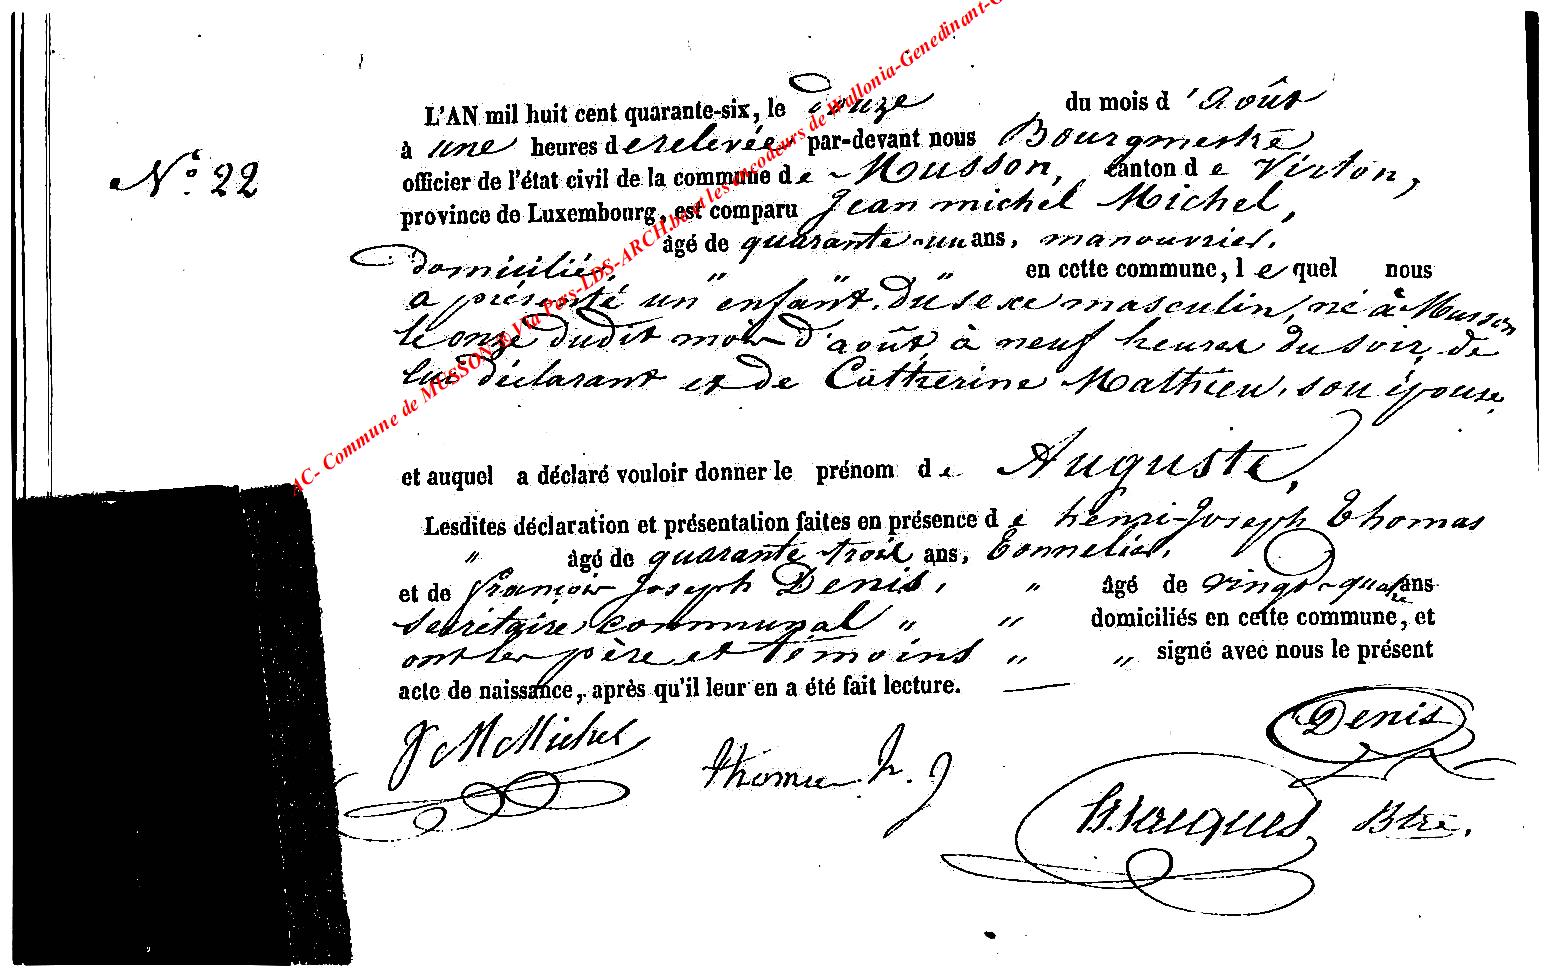 L'AN mil huit cent quarante-six, le douze du mois d'Août
à une heures de relevée par-devant nous Bourgmestre
N.° 22
officier de l'état civil de la commune de Musson, canton de Virton,
province de Luxembourg, est comparu Jean michel Michel,
âgé de quarante-un ans, manouvrier,
domicilié " " en cette commune, lequel nous
a présenté un enfant du sexe masculin, né à Musson
le onze dudit mois d'août, à neuf heures du soir, de
lui déclarant et de Catherine Mathieu, son épouse,
et auquel a déclaré vouloir donner le prénom de Auguste,
Lesdites déclaration et présentation faites en présence de henri-Joseph Thomas
" âgé de quarante trois ans, Tonnelier,
et de françois Joseph Denis, " âgé de vingt-quatre ans
Secrétaire communal " " domiciliés en cette commune, et
ont les père et témoins " " signé avec nous le présent
acte de naissance, après qu'il leur en a été fait lecture. —
J M Michel
thomas h. j
Denis
Btre.
AC- Commune de MUSSON & Via Pers-LDS-ARCH.be et les encodeurs de Wallonia-Genedinant-G